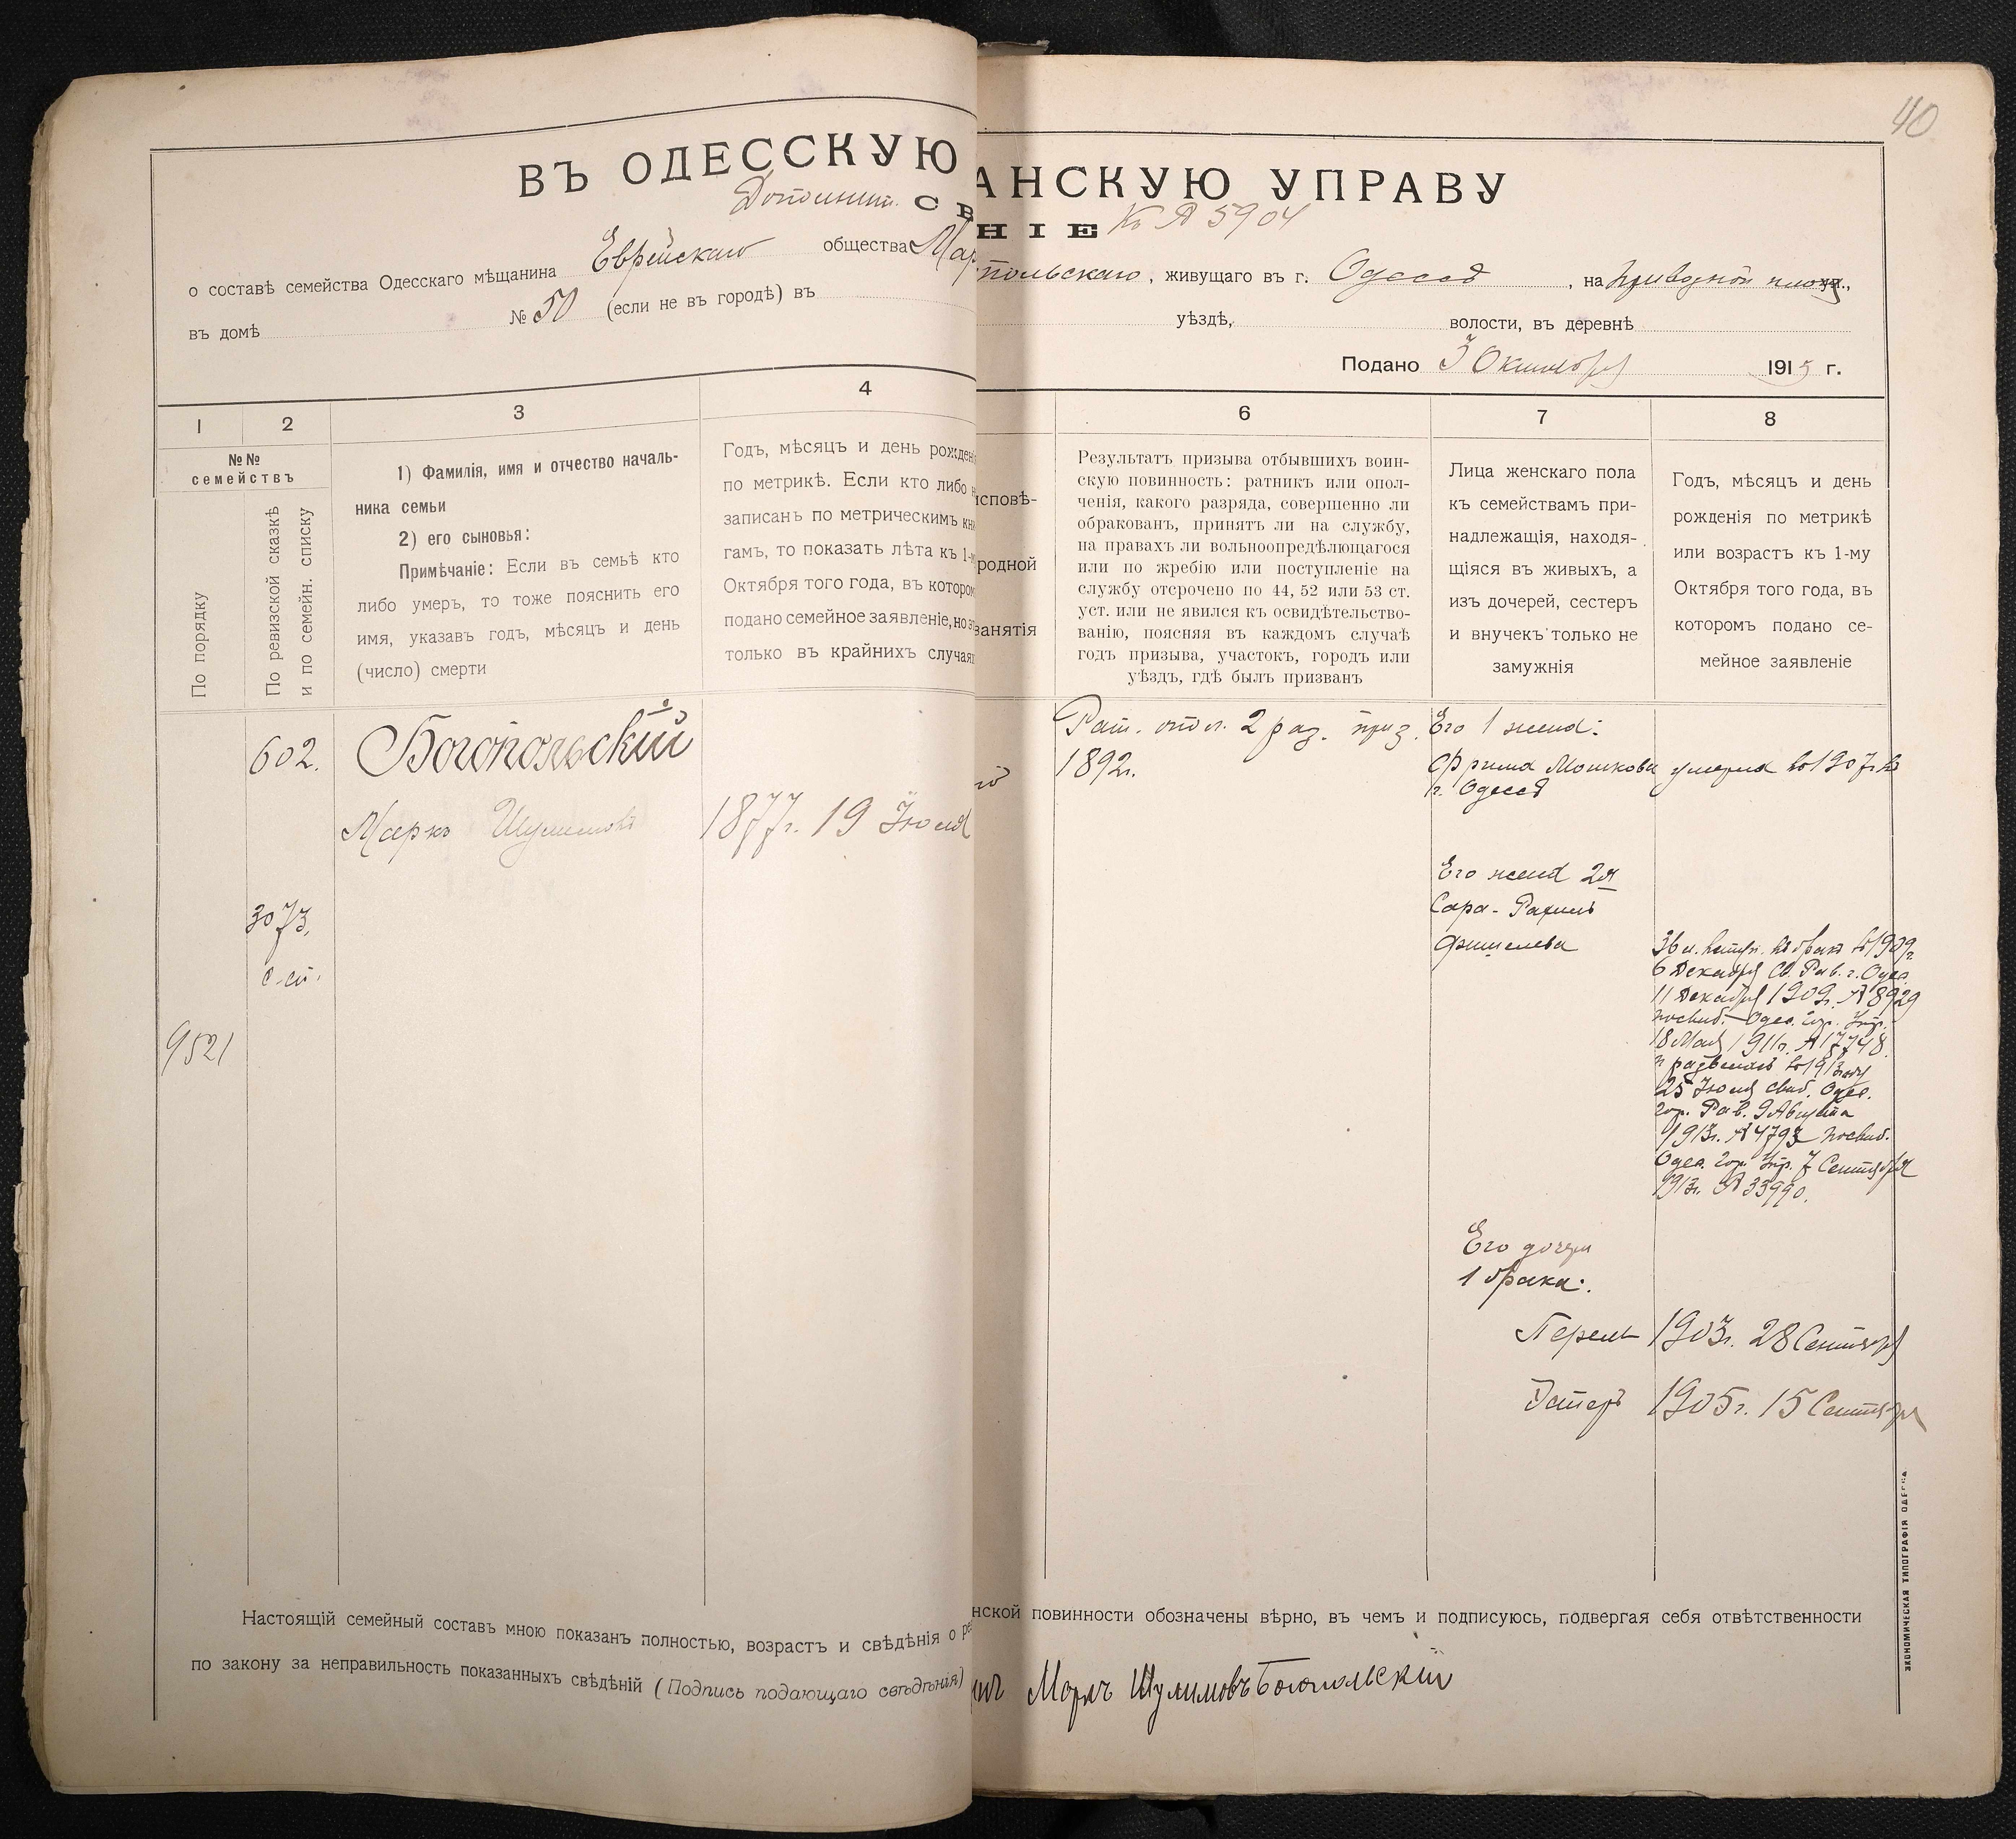 40
ВЪ ОДЕССКУЮ АНСКУЮ УПРАВУ
Дополнит. СВ НІЕ Къ № 5904
о составѣ семейства Одесскаго мѣщанина Еврейскаго общества Мар польскаго, живущаго въ г. Одессѣ, на площ.,
въ домѣ № 50 (если не въ городѣ) въ уѣздѣ, волости, въ деревнѣ
Подано 3 Октября 1915 г.
1 2 3 4 6 7 8
№№ семействъ
По порядку
По ревизской сказкѣ
и по семейн. списку
1) Фамилія, имя и отчество началь-
ника семьи
2) его сыновья:
Примѣчаніе: Если въ семьѣ кто
либо умеръ, то тоже пояснить его
имя, указавъ годъ, мѣсяцъ и день
(число) смерти
Годъ, мѣсяцъ и день рожден
по метрикѣ. Если кто либо н
записанъ по метрическимъ кни
гамъ, то показать лѣта къ 1-м
Октября того года, въ котором
подано семейное заявленіе, но э
только въ крайнихъ случая
исповѣ-
родной
занятія
Результатъ призыва отбывшихъ воин-
скую повинность: ратникъ или опол-
ченія, какого разряда, совершенно ли
обракованъ, принятъ ли на службу,
на правахъ ли вольноопредѣлющагося
или по жребію или поступленіе на
службу отсрочено по 44, 52 или 53 ст.
уст. или не явился къ освидѣтельство-
ванію, поясняя въ каждомъ случаѣ
годъ призыва, участокъ, городъ или
уѣздъ, гдѣ былъ призванъ
Лица женскаго пола
къ семействамъ при-
надлежащія, находя-
щіяся въ живыхъ, а
изъ дочерей, сестеръ
и внучекъ только не
замужнія
Годъ, мѣсяцъ и день
рожденія по метрикѣ
или возрастъ къ 1-му
Октября того года, въ
которомъ подано се-
мейное заявленіе
602.
3073,
с.сп.
9521
Богопольскій
Маркъ Шулимовъ
1877г. 19 Іюля
Рат. опол. 2 раз. приз.
1892г.
Его 1 жена:
Фрима Мошкова умерла въ 1907г. въ
г. Одессѣ
Его жена 2я
Сара-Рахиль
Фишелева
36 л. вступ. въ бракъ въ 1909г.
6 Декабря св. Рав. г. Одес.
11 Декабря 1909г. № 8929
Одес. гор. Упр.
18 Мая 1911г. № 17748.
и развелась въ 1913 году
25 Іюля свид. Одес.
гор. Рав. 9 Августа
1913г. № 4793
Одес. гор. Упр. 7 Сентября
1913г. № 33990.
Его дочери
1 брака:
Перель 1903г. 28 Сентября
Эстеръ 1905г. 15 Сентября
Настоящій семейный составъ мною показанъ полностью, возрастъ и свѣдѣнія о нской повинности обозначены вѣрно, въ чемъ и подписуюсь, подвергая себя отвѣтственности
по закону за неправильность показанныхъ свѣдѣній (Подпись подающаго свѣдѣнія)
Маркъ Шулимовъ Богопольскій
ЭКОНОМИЧЕСКАЯ ТИПОГРАФІЯ ОДЕССА